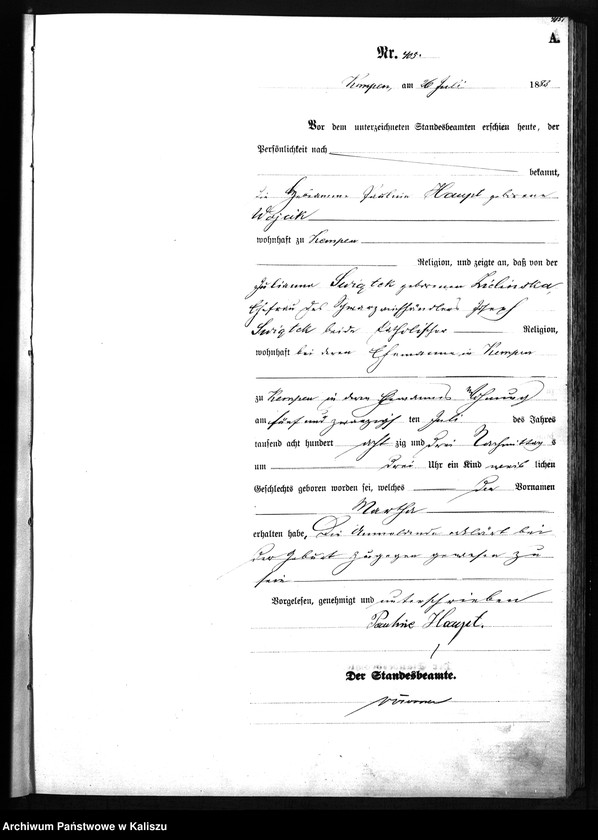 A.
Nr. 405.
Kempen, am 26 Juli 1883
Vor dem unterzeichneten Standesbeamten erschien heute, der
Persönlichkeit nach
bekannt,
die Hebamme Pauline Haupt geborene
Wojcik
wohnhaft zu Kempen
Religion, und zeigte an, daß von der
Julianna Swiątek geborenen
Ehefrau des Schwarzviehhändlers Josef
Swiątek beide katholischer Religion,
wohnhaft bei deren Ehemanne in Kempen
zu Kempen in deren Ehemannes Wohnung
am fünf und zwanzigsten Juli des Jahres
tausend acht hundert acht zig und drei Nachmittags
um drei Uhr ein Kind weib lichen
Geschlechts geboren worden sei, welches den Vornamen
Martha
erhalten habe, Die Anmeldende erklärt bei
der Geburt zugegen gewesen zu
sein
Vorgelesen, genehmigt und unterschrieben
Pauline Haupt.
Der Standesbeamte.
Archiwum Państwowe w Kaliszu